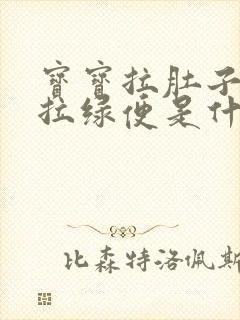 寶寶拉肚子
拉绿便是什
比森特洛佩斯